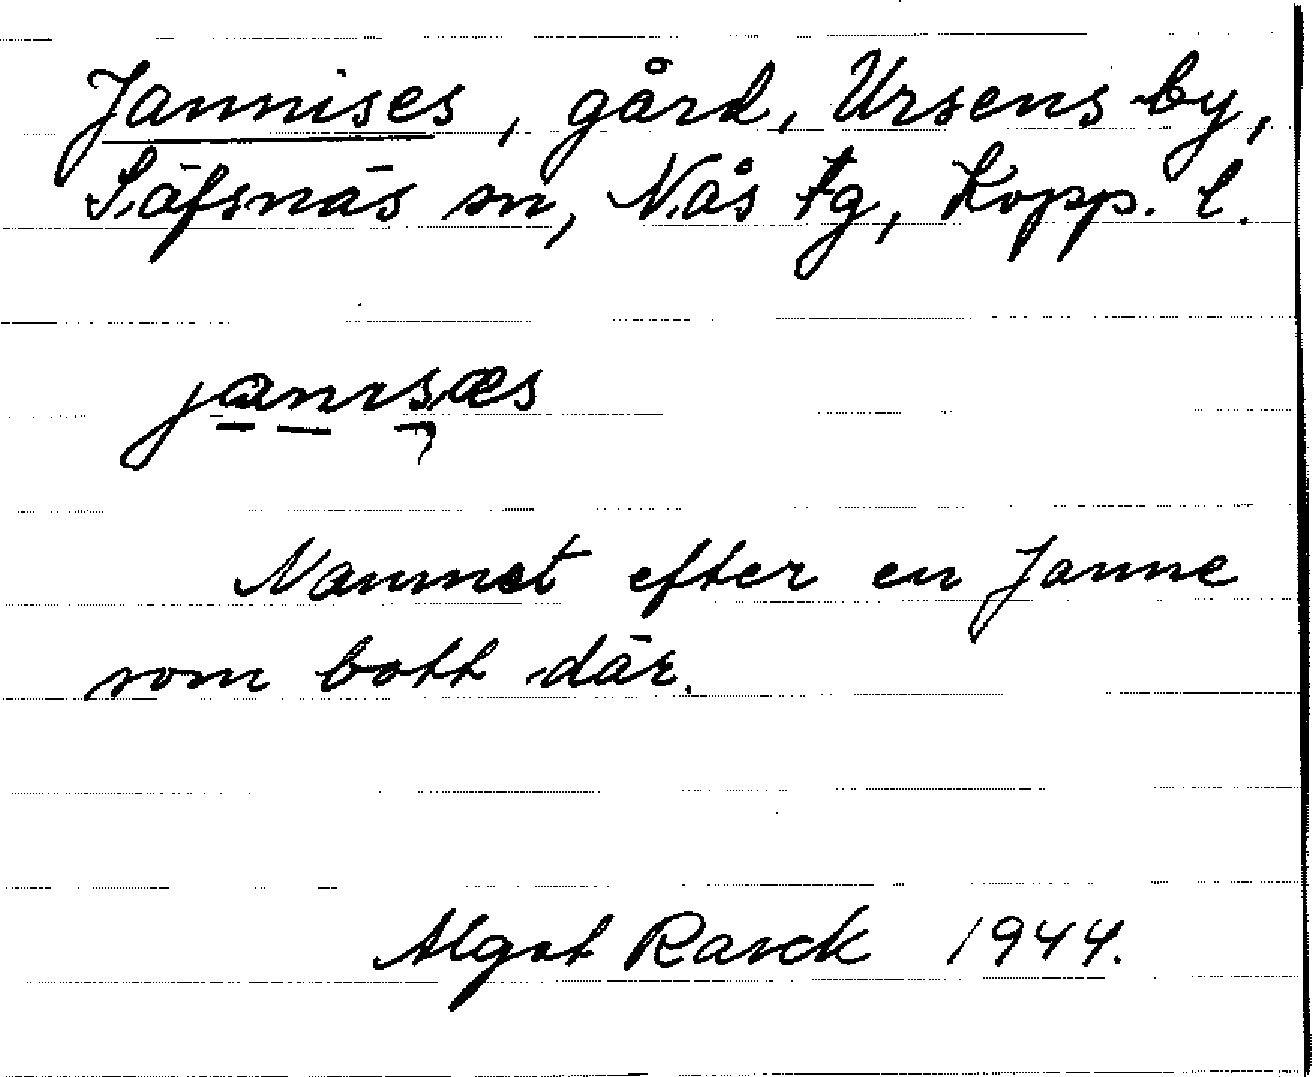 Jannises, gård, Ursens by,
Säfsnäs sn, Nås tg, Kopp. l.
janısæs
Namnet efter en Janne
som bott där.
Algot Rasck 1944.